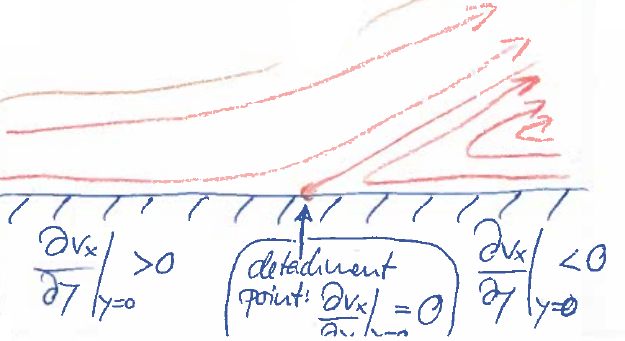 ∂vₓ/∂y|y=0 >0
detachment
point: ∂vₓ/∂y|y=0 = 0
∂vₓ/∂y|y=0 <0